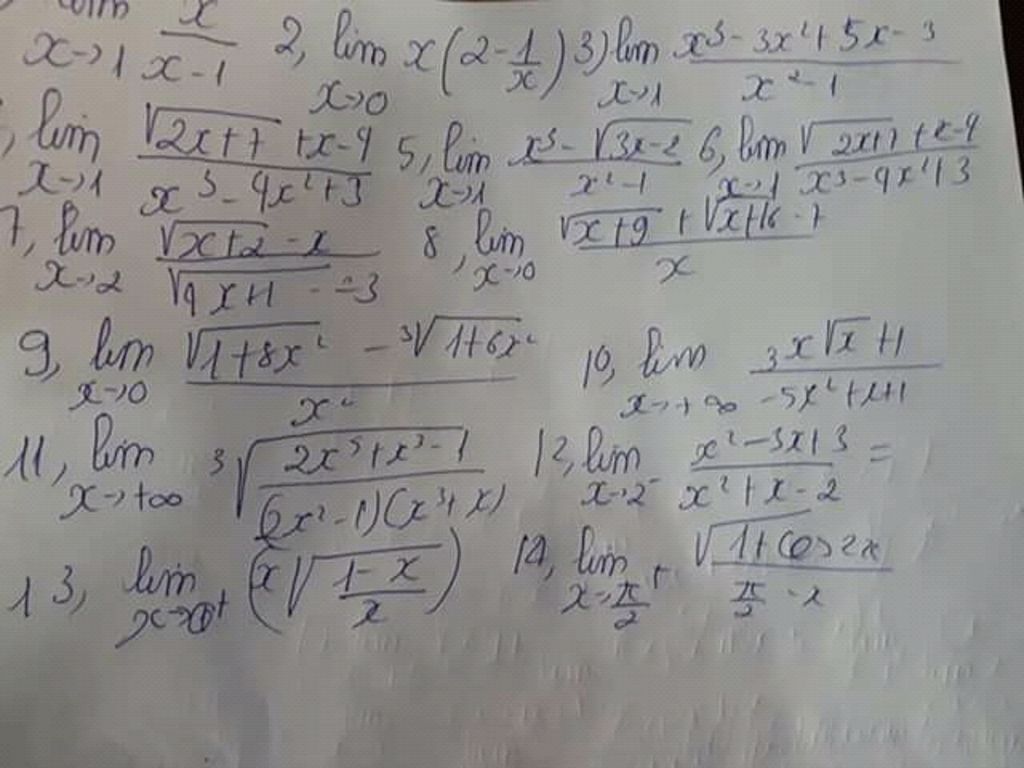 lim x→1 x/(x-1) 2, lim x→0 x(2-1/x) 3) lim x→1 (x³-3x²+5x-3)/(x²-1)
, lim x→1 (√(2x+7)+x-4)/(x³-4x²+3) 5, lim x→1 (x³-√(3x-2))/(x²-1) 6, lim x→1 (√(2x+7)+x-4)/(x³-4x²+3)
7, lim x→2 (√(x+2)-x)/(√(4x+1)-3) 8, lim x→0 (√(x+9)+√(x+16)-7)/x
9, lim x→0 (√(1+8x²)-³√(1+6x²))/x² 10, lim x→+∞ (3x√x+1)/(-5x²+x+1)
11, lim x→+∞ ³√((2x⁵+x³-1)/((2x²-1)(x³+x))) 12, lim x→2⁻ (x²-3x+3)/(x²+x-2) =
13, lim x→0⁺ (x√((1-x)/x)) 14, lim x→π/2⁺ √(1+cos2x)/(π/2-x)